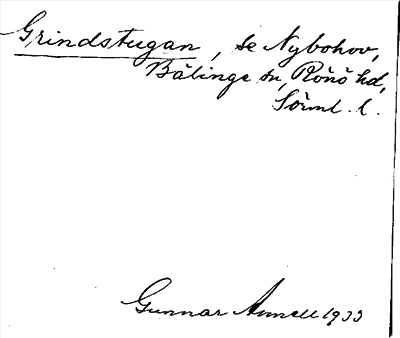 Grindstugan, se Nybohov,
Bälinge sn, Rönö hd,
Sörml. l.
Gunnar Annell 1933